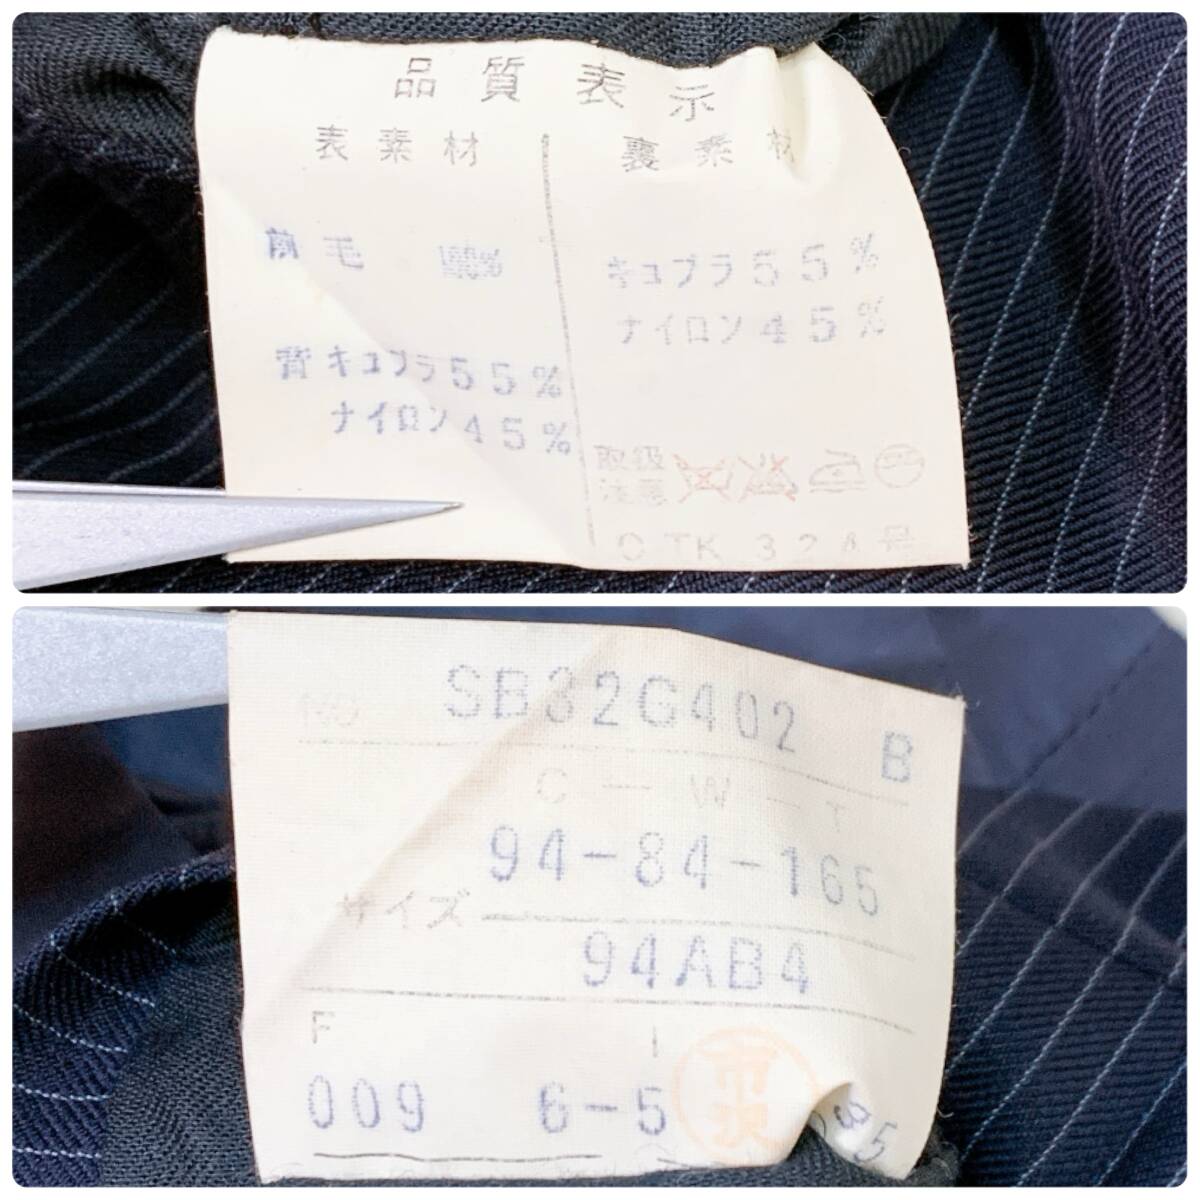 品質表示
表素材
裏素材
前毛 100%
背キュプラ55%
ナイロン45%
キュプラ55%
ナイロン45%
取扱
注意
CTK 324号
NO SB32G402 B
C-W-T
94-84-165
サイズ
94AB4
F I
009 6-5
市沢
85